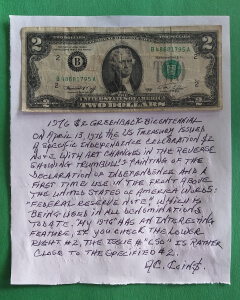 2
2
B
B 48881795 A
TWO DOLLARS
1976 $2 GREENBACK BICENTENNIAL
ON APRIL 13, 1976 THE US TREASURY ISSUED
A SPECIFIC INDEPENDENCE CELEBRATION $2
NOTE WITH ART CHANGES IN THE REVERSE
SHOWING TRUMBULL'S PAINTING OF THE
DECLARATION OF INDEPENDENCE AND A
FIRST TIME USE IN THE FRONT ABOVE
THE UNITED STATES OF AMERICA WORDS:
"FEDERAL RESERVE NOTE" WHICH IS
BEING USED IN ALL DENOMINATIONS
TO DATE. MY 1976 HAS AN INTERESTING
FEATURE, IF YOU CHECK THE LOWER
RIGHT #2, THE ISSUE # IS RATHER
CLOSE TO THE SPECIFIED #2.
Coins.